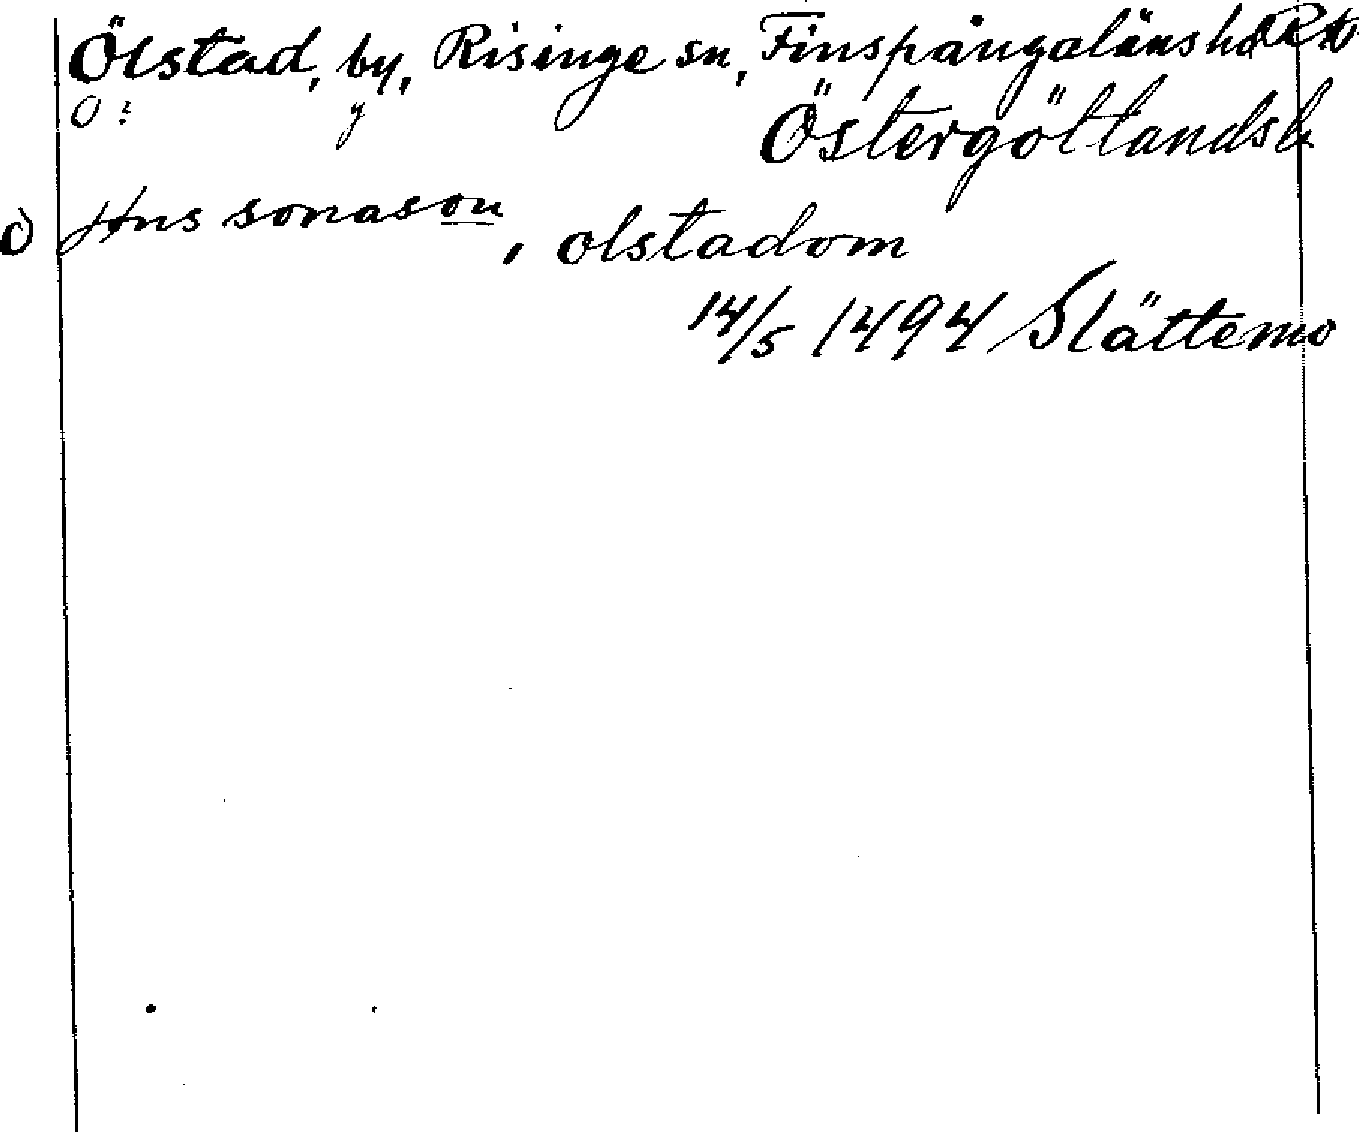 Ölstad, by, Risinge sn, Finspångaläns hd
O: y Östergötlands l.
o) Jøns sonason, olstadom
14/5 1494 Slättemo